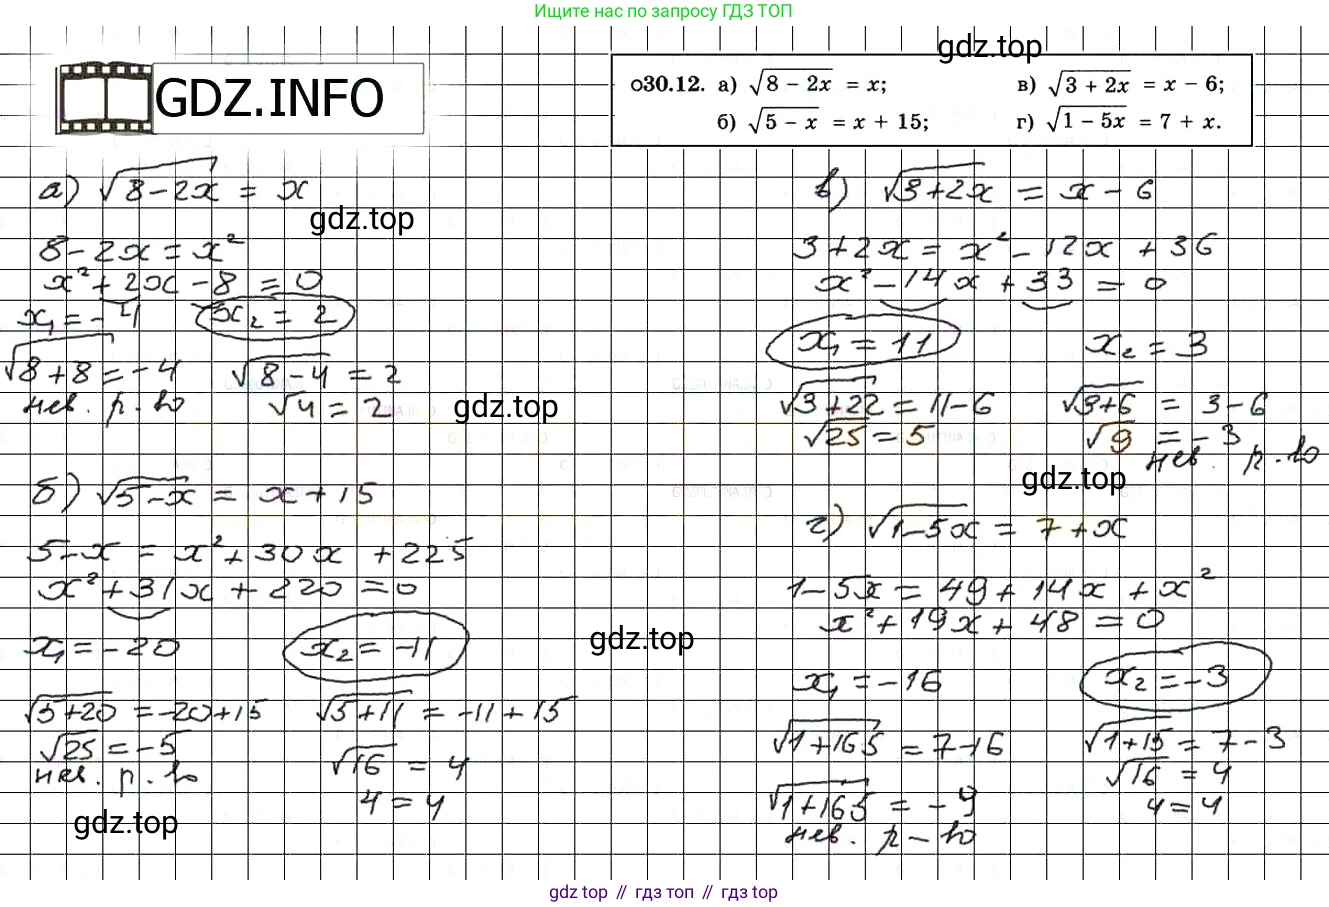 Ищите нас по запросу ГДЗ ТОП
gdz.top
GDZ.INFO
о30.12. а) √(8 − 2x) = x;
в) √(3 + 2x) = x − 6;
б) √(5 − x) = x + 15;
г) √(1 − 5x) = 7 + x.
а) √(8−2x) = x
gdz.top
8−2x = x²
x²+2x−8 = 0
x₁ = −4 x₂ = 2
√(8+8) = −4 √(8−4) = 2
нев. р-во √4 = 2
gdz.top
б) √(5−x) = x+15
5−x = x²+30x+225
x²+31x+220 = 0
x₁ = −20 x₂ = −11
√(5+20) = −20+15 √(5+11) = −11+15
√25 = −5 √16 = 4
нев. р-во 4 = 4
gdz.top
gdz.top
в) √(3+2x) = x−6
3+2x = x²−12x+36
x²−14x+33 = 0
x₁ = 11 x₂ = 3
√(3+22) = 11−6 √(3+6) = 3−6
√25 = 5 √9 = −3
нев. р-во
gdz.top
г) √(1−5x) = 7+x
1−5x = 49+14x+x²
x²+19x+48 = 0
x₁ = −16 x₂ = −3
√(1+165) = 7−16 √(1+15) = 7−3
√16 = 4
√(1+165) = −9 4 = 4
нев. р-во
gdz top // гдз топ // gdz top